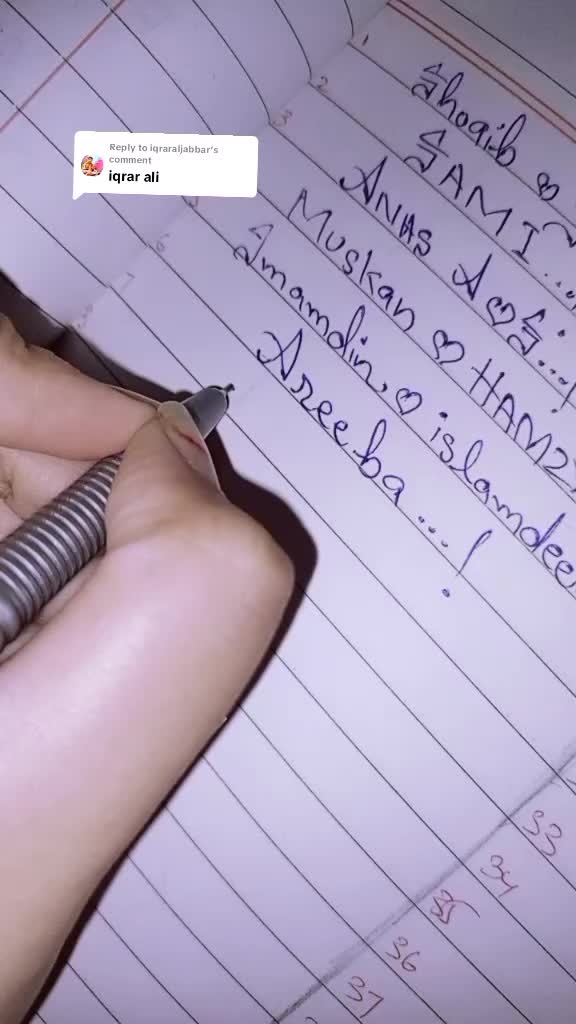 Reply to iqraraljabbar's
comment
iqrar ali
1
Shoaib ♡
2
SAMI~...
3
ANAS A♡S...!
Muskan ♡ HAMZ
Imamdin ♡ islamdee
6
Areeba...!
7
33
34
35
36
37